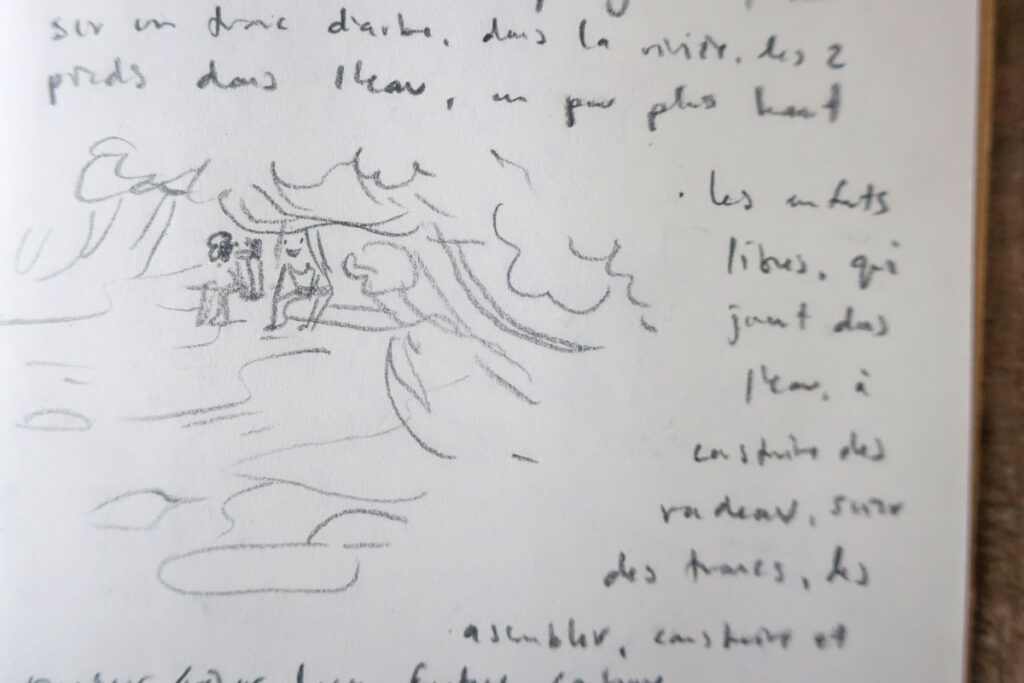 sur un tronc d'arbre, dans la rivière, les 2
pieds dans l'eau, un peu plus haut
. les enfants
libres, qui
jouent dans
l'eau, à
construire des
radeaux, scier
des troncs, les
assembler, construire et
leur future cabane